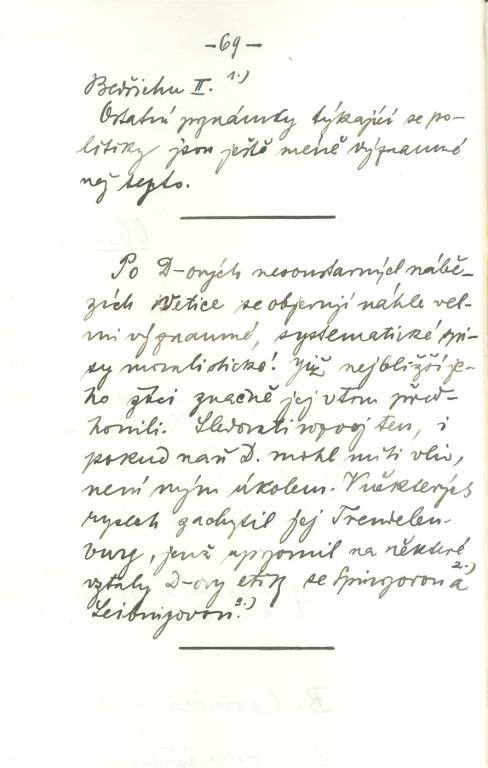 -69-
Bedřichu II. 1.)
Ostatní poznámky týkající se po-
litiky jsou ještě méně významné
než tepto.
Po D-ových nesoustavných nábě-
zích v etice se objevují náhle vel-
mi významné, systematické spi-
sy moralistické! Již nejbližší je-
ho žáci značně jej v tom před-
honili. Sledovati vývoj ten, i
pokud naň D. mohl míti vliv,
není mým úkolem. V některých
rysech zachytil jej Trendelen-
burg, jenž upozornil na některé
vztahy D-ovy etiky se Spinozovou a 2.)
Leibnizovou. 3.)